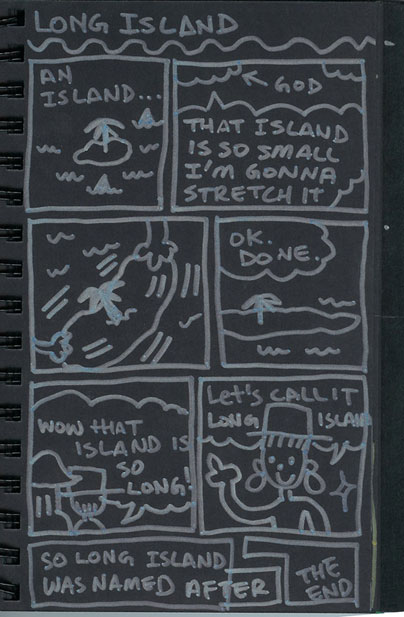 LONG ISLAND
AN
ISLAND...
GOD
THAT ISLAND
IS SO SMALL
I'M GONNA
STRETCH IT
OK.
DONE.
WOW THAT
ISLAND IS
SO
LONG!
Let's CALL IT
LONG ISLAND
SO LONG ISLAND
WAS NAMED AFTER
THE
END